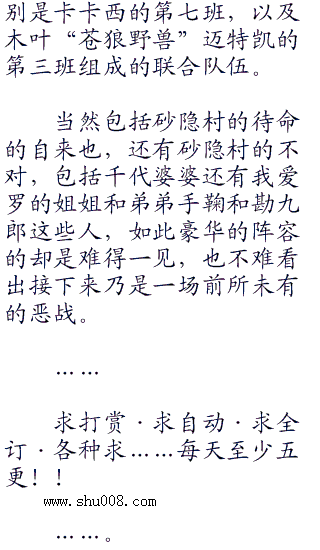 别是卡卡西的第七班，以及
木叶“苍狼野兽”迈特凯的
第三班组成的联合队伍。
当然包括砂隐村的待命
的自来也，还有砂隐村的不
对，包括千代婆婆还有我爱
罗的姐姐和弟弟手鞠和勘九
郎这些人，如此豪华的阵容
的却是难得一见，也不难看
出接下来乃是一场前所未有
的恶战。
……
求打赏·求自动·求全
订·各种求……每天至少五
更！！
www.shu008.com
……。